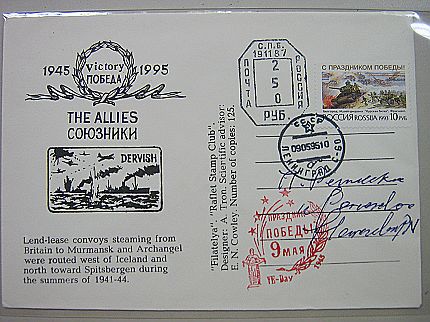 1945 victory 1995
ПОБЕДА
THE ALLIES
СОЮЗНИКИ
DERVISH
Lend-lease convoys steaming from
Britain to Murmansk and Archangel
were routed west of Iceland and
north toward Spitsbergen during
the summers of 1941-44.
"Filatelya" "Ratlet Stamp Club".
Designer: A. Tron. Scientific advisor:
E. N. Cowley. Number of copies: 125.
С.П.Б.
191187
ПОЧТА
РОССИЯ
2
5
0
РУБ.
С ПРАЗДНИКОМ ПОБЕДЫ!
РОССИЯ ROSSIJA 1993 10 РУБ
СССР
09059510
ЛЕНИНГРАД
ПРАЗДНИК
ПОБЕДЫ
9 МАЯ
VE-Day
1945